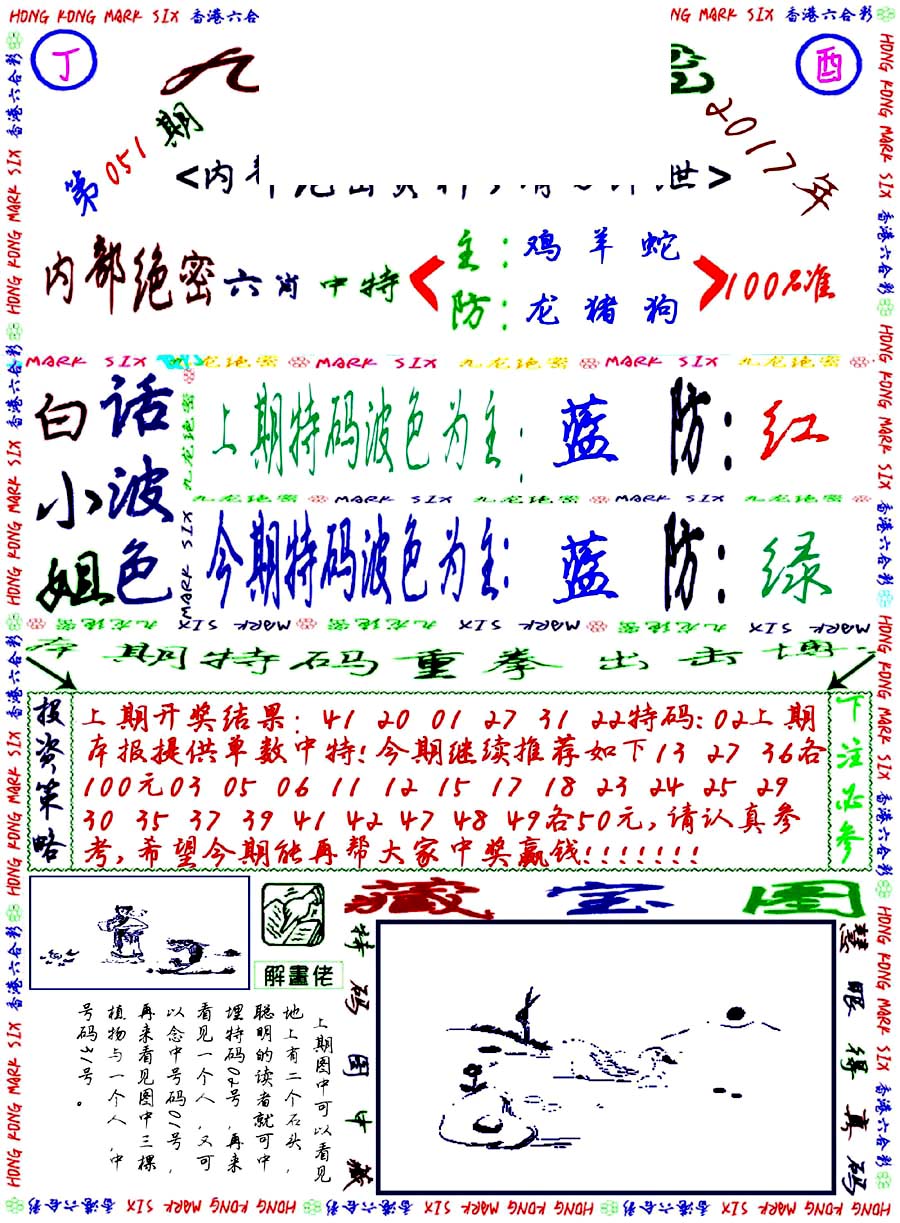 HONG KONG MARK SIX 香港六合彩
丁
九
密
酉
第051期
2017年
<内
世>
内部绝密六肖中特
主：鸡羊蛇
防：龙猪狗
100%准
MARK SIX 九龙绝密 MARK SIX 九龙绝密 MARK SIX 九龙绝密
白小姐
话波色
上期特码波色为主：蓝 防：红
九龙绝密 MARK SIX 九龙绝密 MARK SIX 九龙绝密
今期特码波色为主：蓝 防：绿
九龙绝密 MARK SIX 九龙绝密 MARK SIX 九龙绝密 MARK SIX
本期特码重拳出击博
投资策略
上期开奖结果：41 20 01 27 31 22特码：02上期
本报提供单数中特！今期继续推荐如下13 27 36各
100元03 05 06 11 12 15 17 18 23 24 25 29
30 35 37 39 41 42 47 48 49各50元，请认真参
考，希望今期能再帮大家中奖赢钱！！！！！！！
下注必参
藏宝图
解畫佬
特码图中藏
慧眼得真码
上期图中可以看见
地上有二个石头，
聪明的读者就可中
埋特码02号，再来
看见一个人，又可
以念中号码01号，
再来看见图中三棵
植物与一个人，中
号码31号。
HONG KONG MARK SIX 香港六合彩